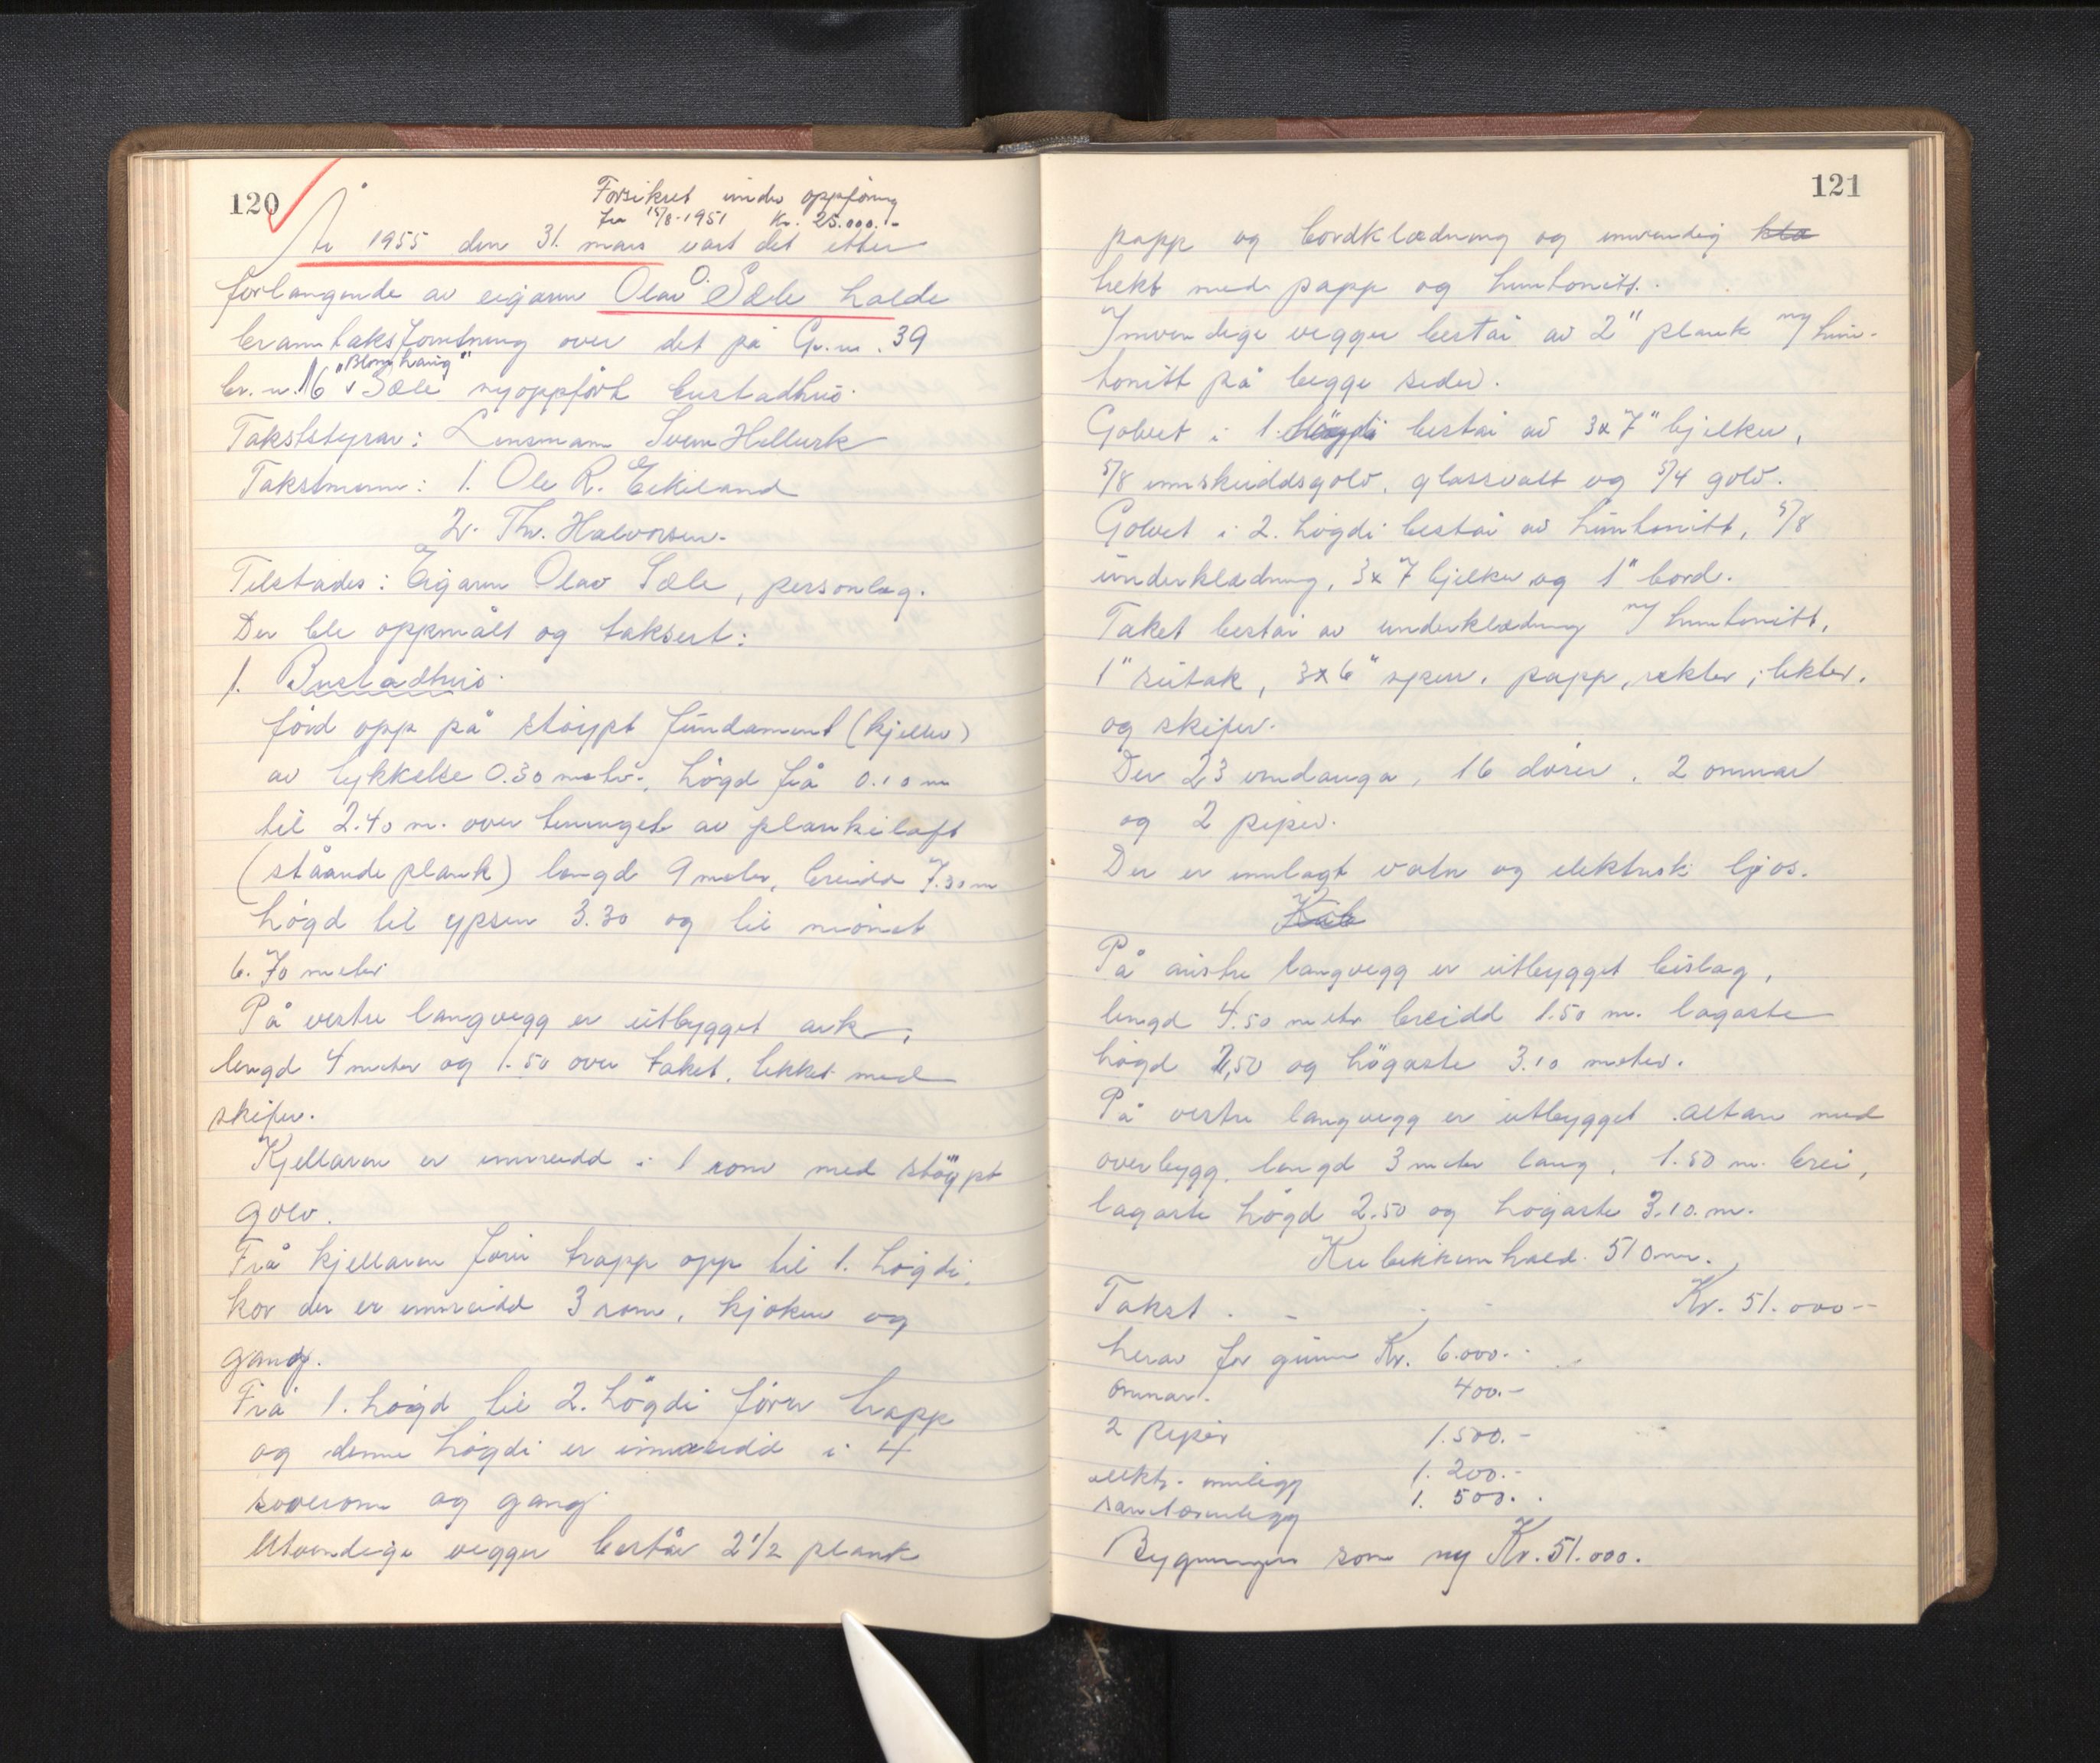 120
Forsikret under oppföring
fra 15/8-1951 Kr. 25.000.-
År 1955 den 31. mars vart det etter
forlangende av eigaren Olav O. Sæle halde
branntakstforretning over det på Gr.nr. 39
br.nr. 16 "Blomhaug" Sæle nyoppfört bustadhus.
Takststyrar: Lensmann Svein Hellesek
Takstmenn: 1. Ole R. Eikeland
2. Th. Halvorsen.
Tilstades: Eigaren Olav Sæle, personleg.
Der ble oppmålt og taksert:
1. Bustadhus.
förd opp på støypt fundament (kjeller)
av tykkelse 0.30 meter, högd frå 0.10 m
til 2.40 m. over terrenget av plankelaft
(ståande plank) lengd 9 meter, breidd 7.30 m
högd til ypsen 3.30 og til mönet
6.70 meter
På vestre langvegg er utbygget ark,
lengd 4 meter og 1.50 over taket, tekket med
skifer.
Kjellaren er innreidd i 1 rom med stöypt
golv.
Frå kjellaren förer trapp opp til 1. högdi,
kor der er innreidd 3 rom, kjøken og
gang.
Frå 1. högd til 2. högdi förer trapp
og denne högdi er innreidd i 4
soverom og gang.
Utvendige vegger består 2 1/2 plank
121
papp og bordklædning og innvendig kla
trekt med papp og huntonitt.
Innvendige vegger bestai av 2" plank m/ hun-
tonitt på begge sider.
Golvet i 1. högdi bestai av 3x7" bjelker,
5/8 innskuddsgolv, glassvatt og 5/4 golv.
Golvet i 2. högdi bestai av huntonitt, 5/8
underklædning, 3x7 bjelker og 1" bord.
Taket bestai av underklædning m/ huntonitt,
1" sutak, 3x6" sperr, papp, rekter, lekter,
og skifer.
Der 23 vindauga, 16 dører, 2 omnar
og 2 piper.
Der er innlagt vatn og elektrisk ljos.
Kub
På austre langvegg er utbygget bislag,
lengd 4.50 meter breidd 1.50 m. lagaste
högd 2,50 og högaste 3.10 meter.
På vestre langvegg er utbygget altan med
overbygg, lengd 3 meter lang, 1.50 m. brei,
lagaste högd 2.50 og högaste 3.10.m.
Kubikkinnhald. 510 m.
Takst. - - Kr. 51.000.-
herav for grunn Kr. 6.000.-
omnar. 400.-
2 piper 1.500.-
elektr. innlegg 1.200.-
sanitæranlegg 1.500.-
Bygningen som ny Kr. 51.000.